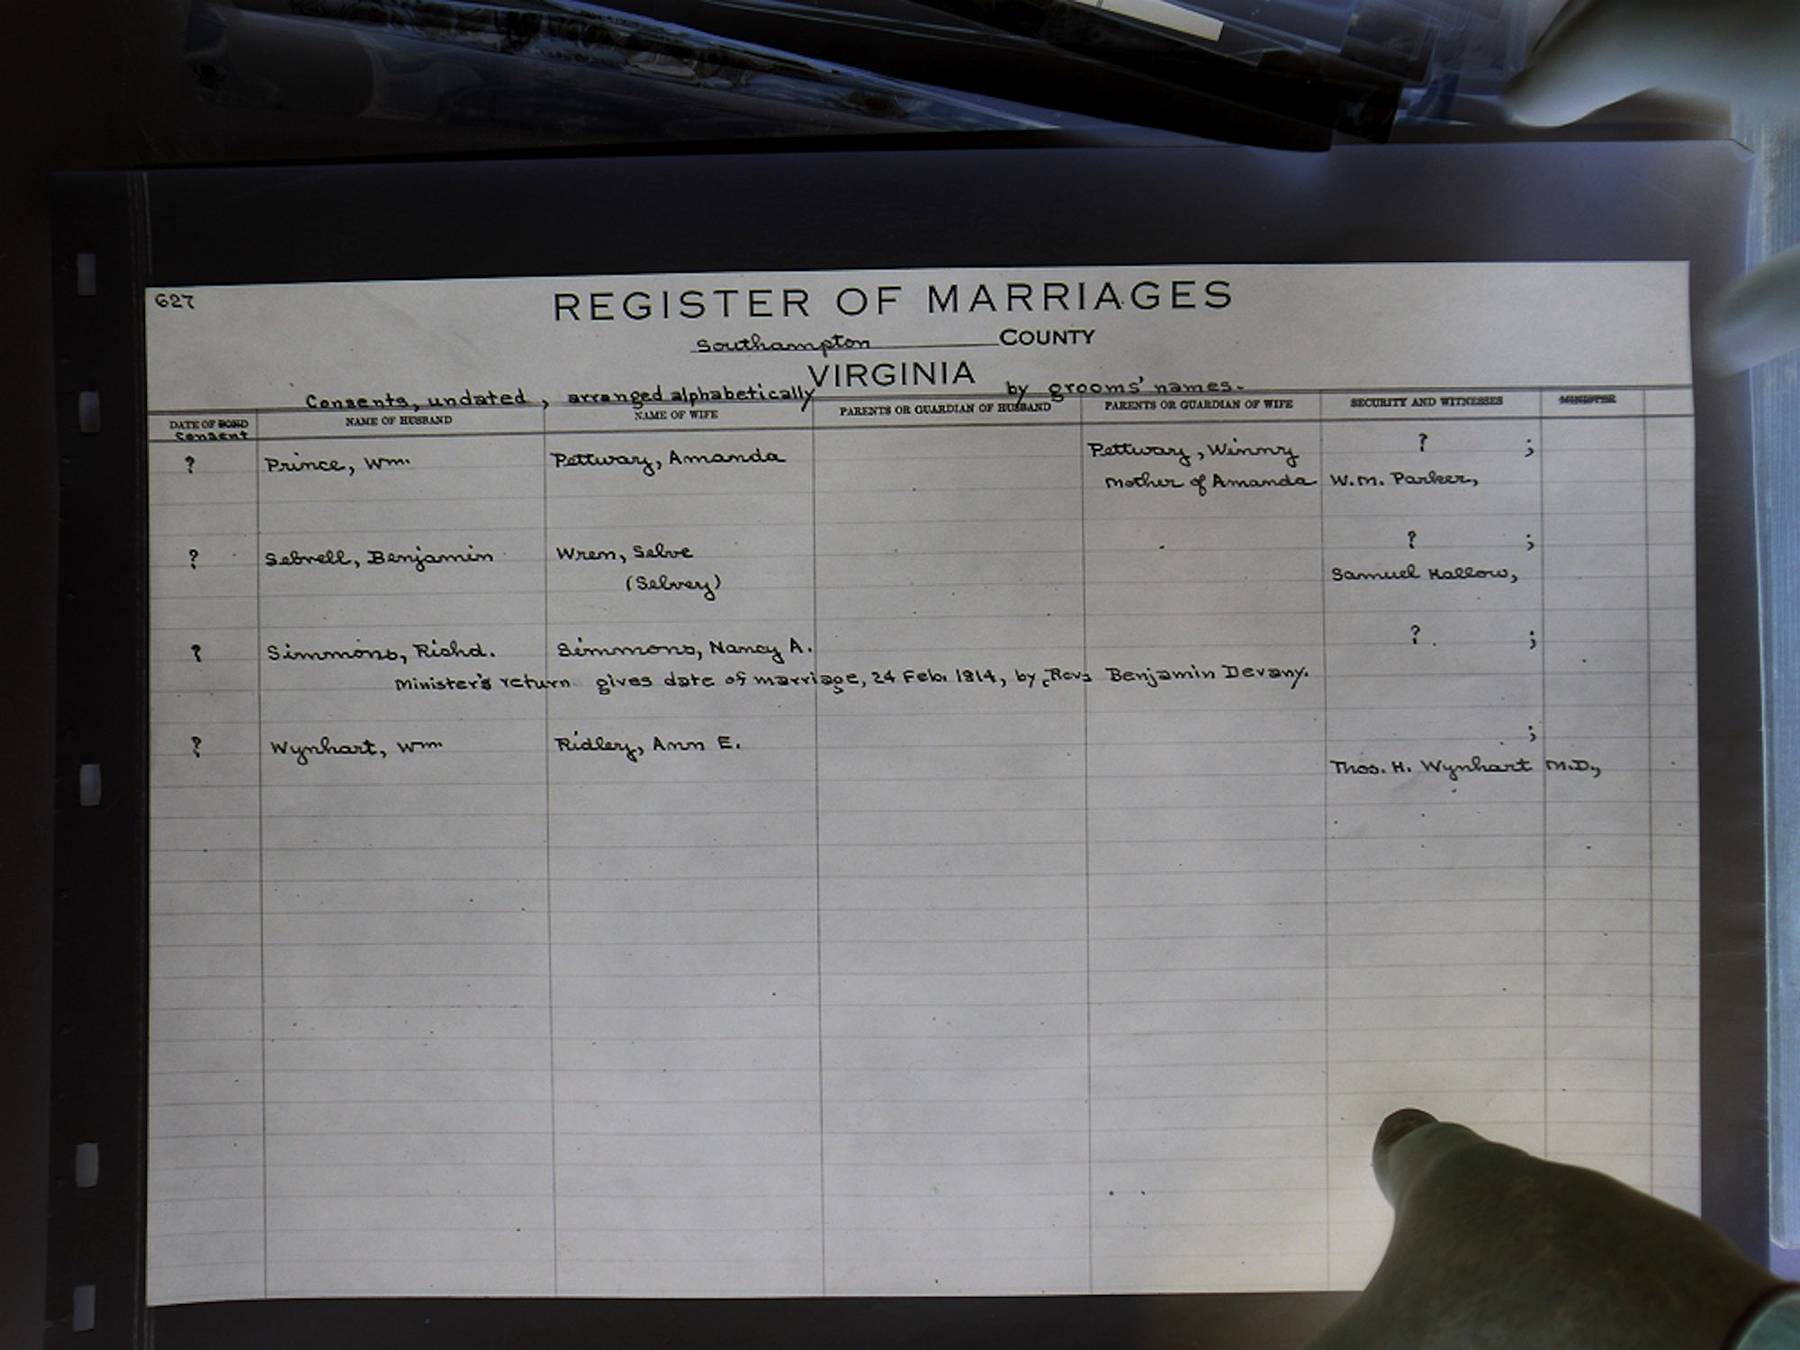 627
REGISTER OF MARRIAGES
Southampton COUNTY
VIRGINIA
Consents, undated, arranged alphabetically by grooms' names.
DATE OF BOND Consent NAME OF HUSBAND NAME OF WIFE PARENTS OR GUARDIAN OF HUSBAND PARENTS OR GUARDIAN OF WIFE SECURITY AND WITNESSES MINISTER
? Prince, Wm. Pettway, Amanda Pettway, Winny ? ;
mother of Amanda W.M. Parker,
? Sebrell, Benjamin Wren, Selve ? ;
(Selvey) Samuel Hallow,
? Simmons, Richd. Simmons, Nancy A. ? ;
Minister's return gives date of marriage, 24 Feb. 1814, by Rev. Benjamin Devany.
? Wynhart, Wm. Ridley, Ann E. ;
Thos. H. Wynhart M.D.,